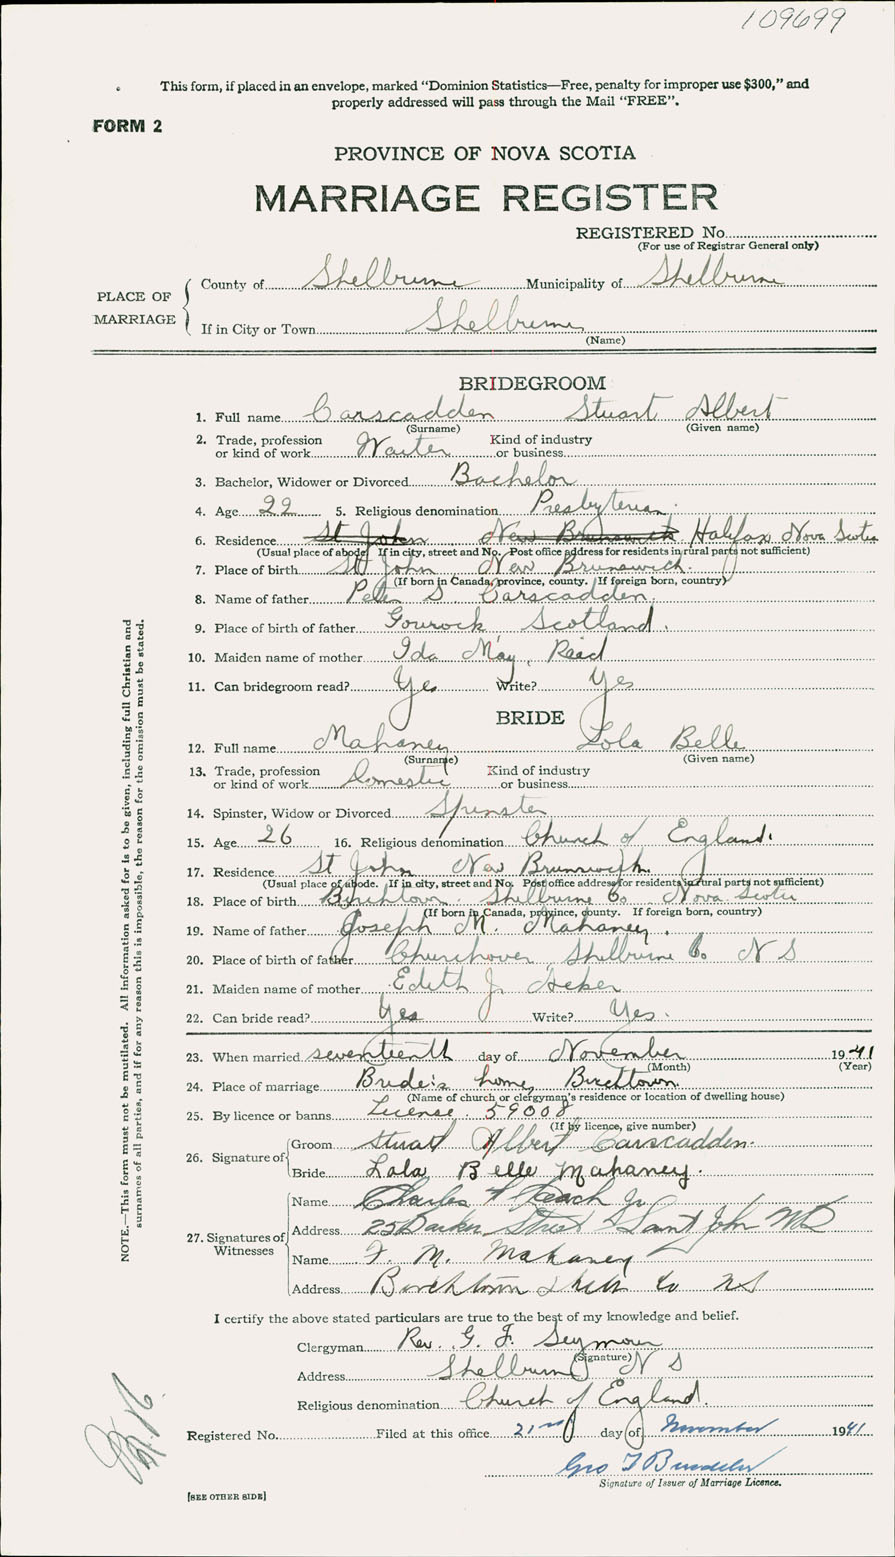 109699
This form, if placed in an envelope, marked "Dominion Statistics—Free, penalty for improper use $300," and
properly addressed will pass through the Mail "FREE".
FORM 2
PROVINCE OF NOVA SCOTIA
MARRIAGE REGISTER
REGISTERED No.
(For use of Registrar General only)
PLACE OF MARRIAGE
County of Shelburne Municipality of Shelburne
If in City or Town Shelburne
(Name)
BRIDEGROOM
1. Full name Carscadden Stuart Albert
(Surname) (Given name)
2. Trade, profession or kind of work Waiter Kind of industry or business
3. Bachelor, Widower or Divorced Bachelor
4. Age 22 5. Religious denomination Presbyterian.
6. Residence St John New Brunswick Halifax Nova Scotia
(Usual place of abode. If in city, street and No. Post office address for residents in rural parts not sufficient)
7. Place of birth St John New Brunswick.
(If born in Canada, province, county. If foreign born, country)
8. Name of father Peter S. Carscadden.
9. Place of birth of father Gourock Scotland.
10. Maiden name of mother Ida May Reid
11. Can bridegroom read? Yes Write? Yes
BRIDE
12. Full name Mahaney Lola Belle
(Surname) (Given name)
13. Trade, profession or kind of work Domestic Kind of industry or business
14. Spinster, Widow or Divorced Spinster
15. Age 26 16. Religious denomination Church of England.
17. Residence St John New Brunswick.
(Usual place of abode. If in city, street and No. Post office address for residents in rural parts not sufficient)
18. Place of birth Birchtown Shelburne Co. Nova Scotia
(If born in Canada, province, county. If foreign born, country)
19. Name of father Joseph M. Mahaney.
20. Place of birth of father Churchover Shelburne Co. N S
21. Maiden name of mother Edith J.
22. Can bride read? Yes Write? Yes.
23. When married seventeenth day of November 1941
(Month) (Year)
24. Place of marriage Bride's home, Birchtown.
(Name of church or clergyman's residence or location of dwelling house)
25. By licence or banns License. 59008
(If by licence, give number)
26. Signature of
Groom Stuart Albert Carscadden.
Bride Lola Belle Mahaney.
27. Signatures of Witnesses
Name Charles Jr
Address 25 Barker Street Saint John NB
Name F. M. Mahaney
Address Birchtown Shelb Co NS
I certify the above stated particulars are true to the best of my knowledge and belief.
Clergyman Rev. G. F. Seymour
(Signature)
Address Shelburne N S
Religious denomination Church of England.
Registered No. Filed at this office 21st day of November 1941
Geo T
Signature of Issuer of Marriage Licence.
[SEE OTHER SIDE]
NOTE.—This form must not be mutilated. All information asked for is to be given, including full Christian and
surnames of all parties, and if for any reason this is impossible, the reason for the omission must be stated.